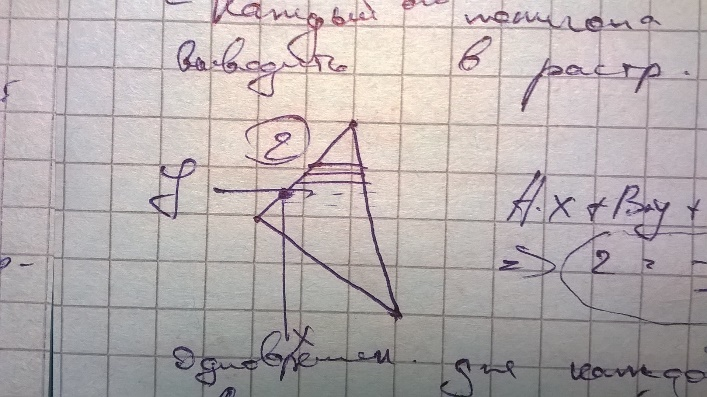 - Каждый полигона
выводить в растр.
2
y
A·x + B·y +
=> 2 = -
x
Одновремен. для каждо